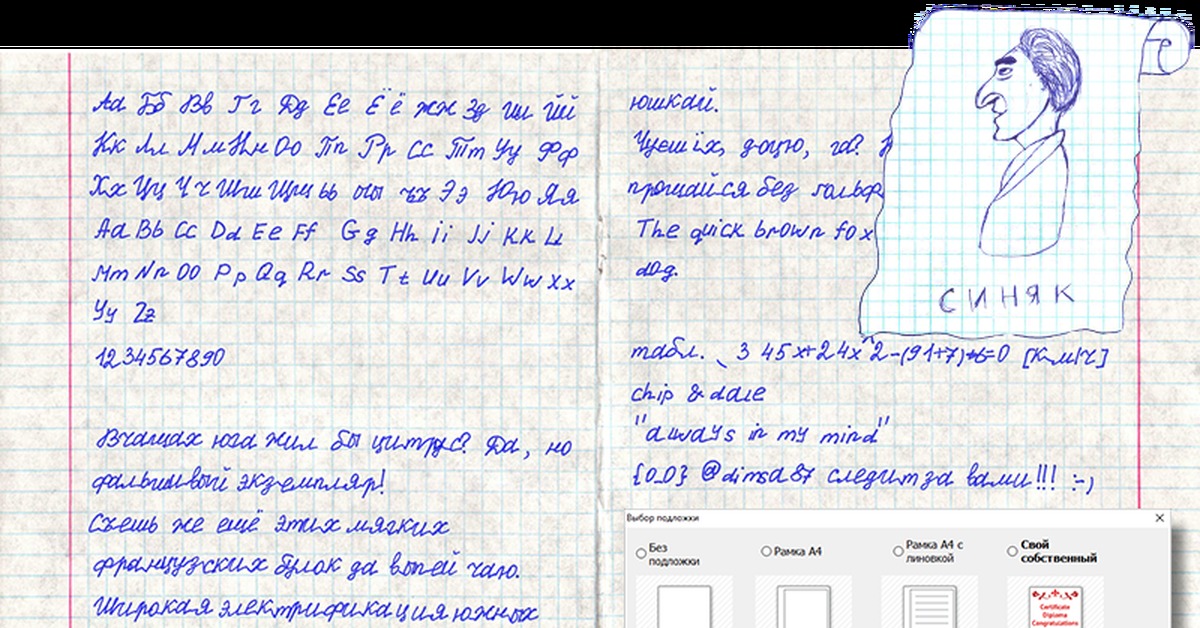 Аа Бб Вв Гг Дд Ее Ёё Жж Зз Ии Йй
Кк Лл Мм Нн Оо Пп Рр Сс Тт Уу Фф
Хх Цц Чч Шш Щщ ьь ыы ъъ Ээ Юю Яя
Aa Bb Cc Dd Ee Ff Gg Hh Ii Jj Kk Ll
Mm Nn Oo Pp Qq Rr Ss Tt Uu Vv Ww Xx
Yy Zz
1234567890
В чащах юга жил бы цитрус? Да, но
фальшивый экземпляр!
Съешь же ещё этих мягких
французских булок да выпей чаю.
Широкая электрификация южных
юшкай.
Чуеш їх, доцю, га?
прощайся без гольф
The quick brown fox
dog.
СИНЯК
табл. 3 45x+24x^2-(91+7)+6=0 [км/ч]
chip & dale
"always in my mind"
{0_0} @dimsa87 следит за вами!!! :-)
Выбор подложки
Без подложки
Рамка А4
Рамка А4 с линовкой
Свой собственный
Certificate
Diploma
Congratulations